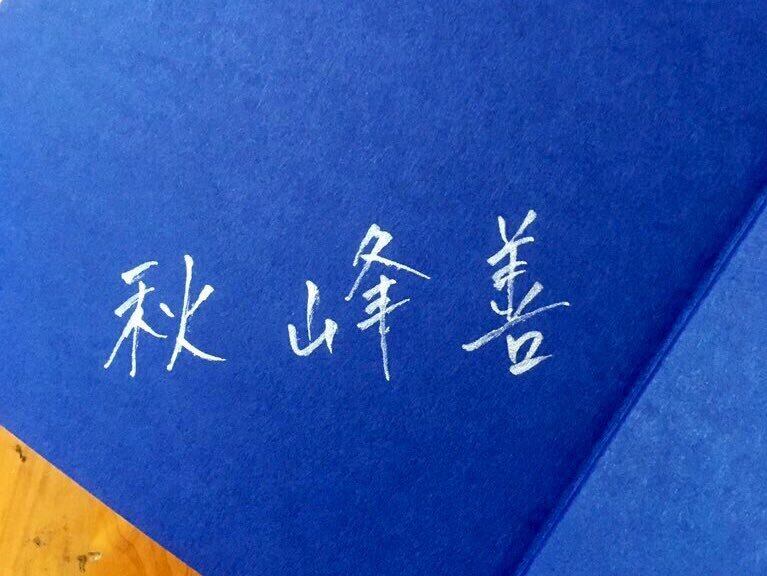 秋峰善